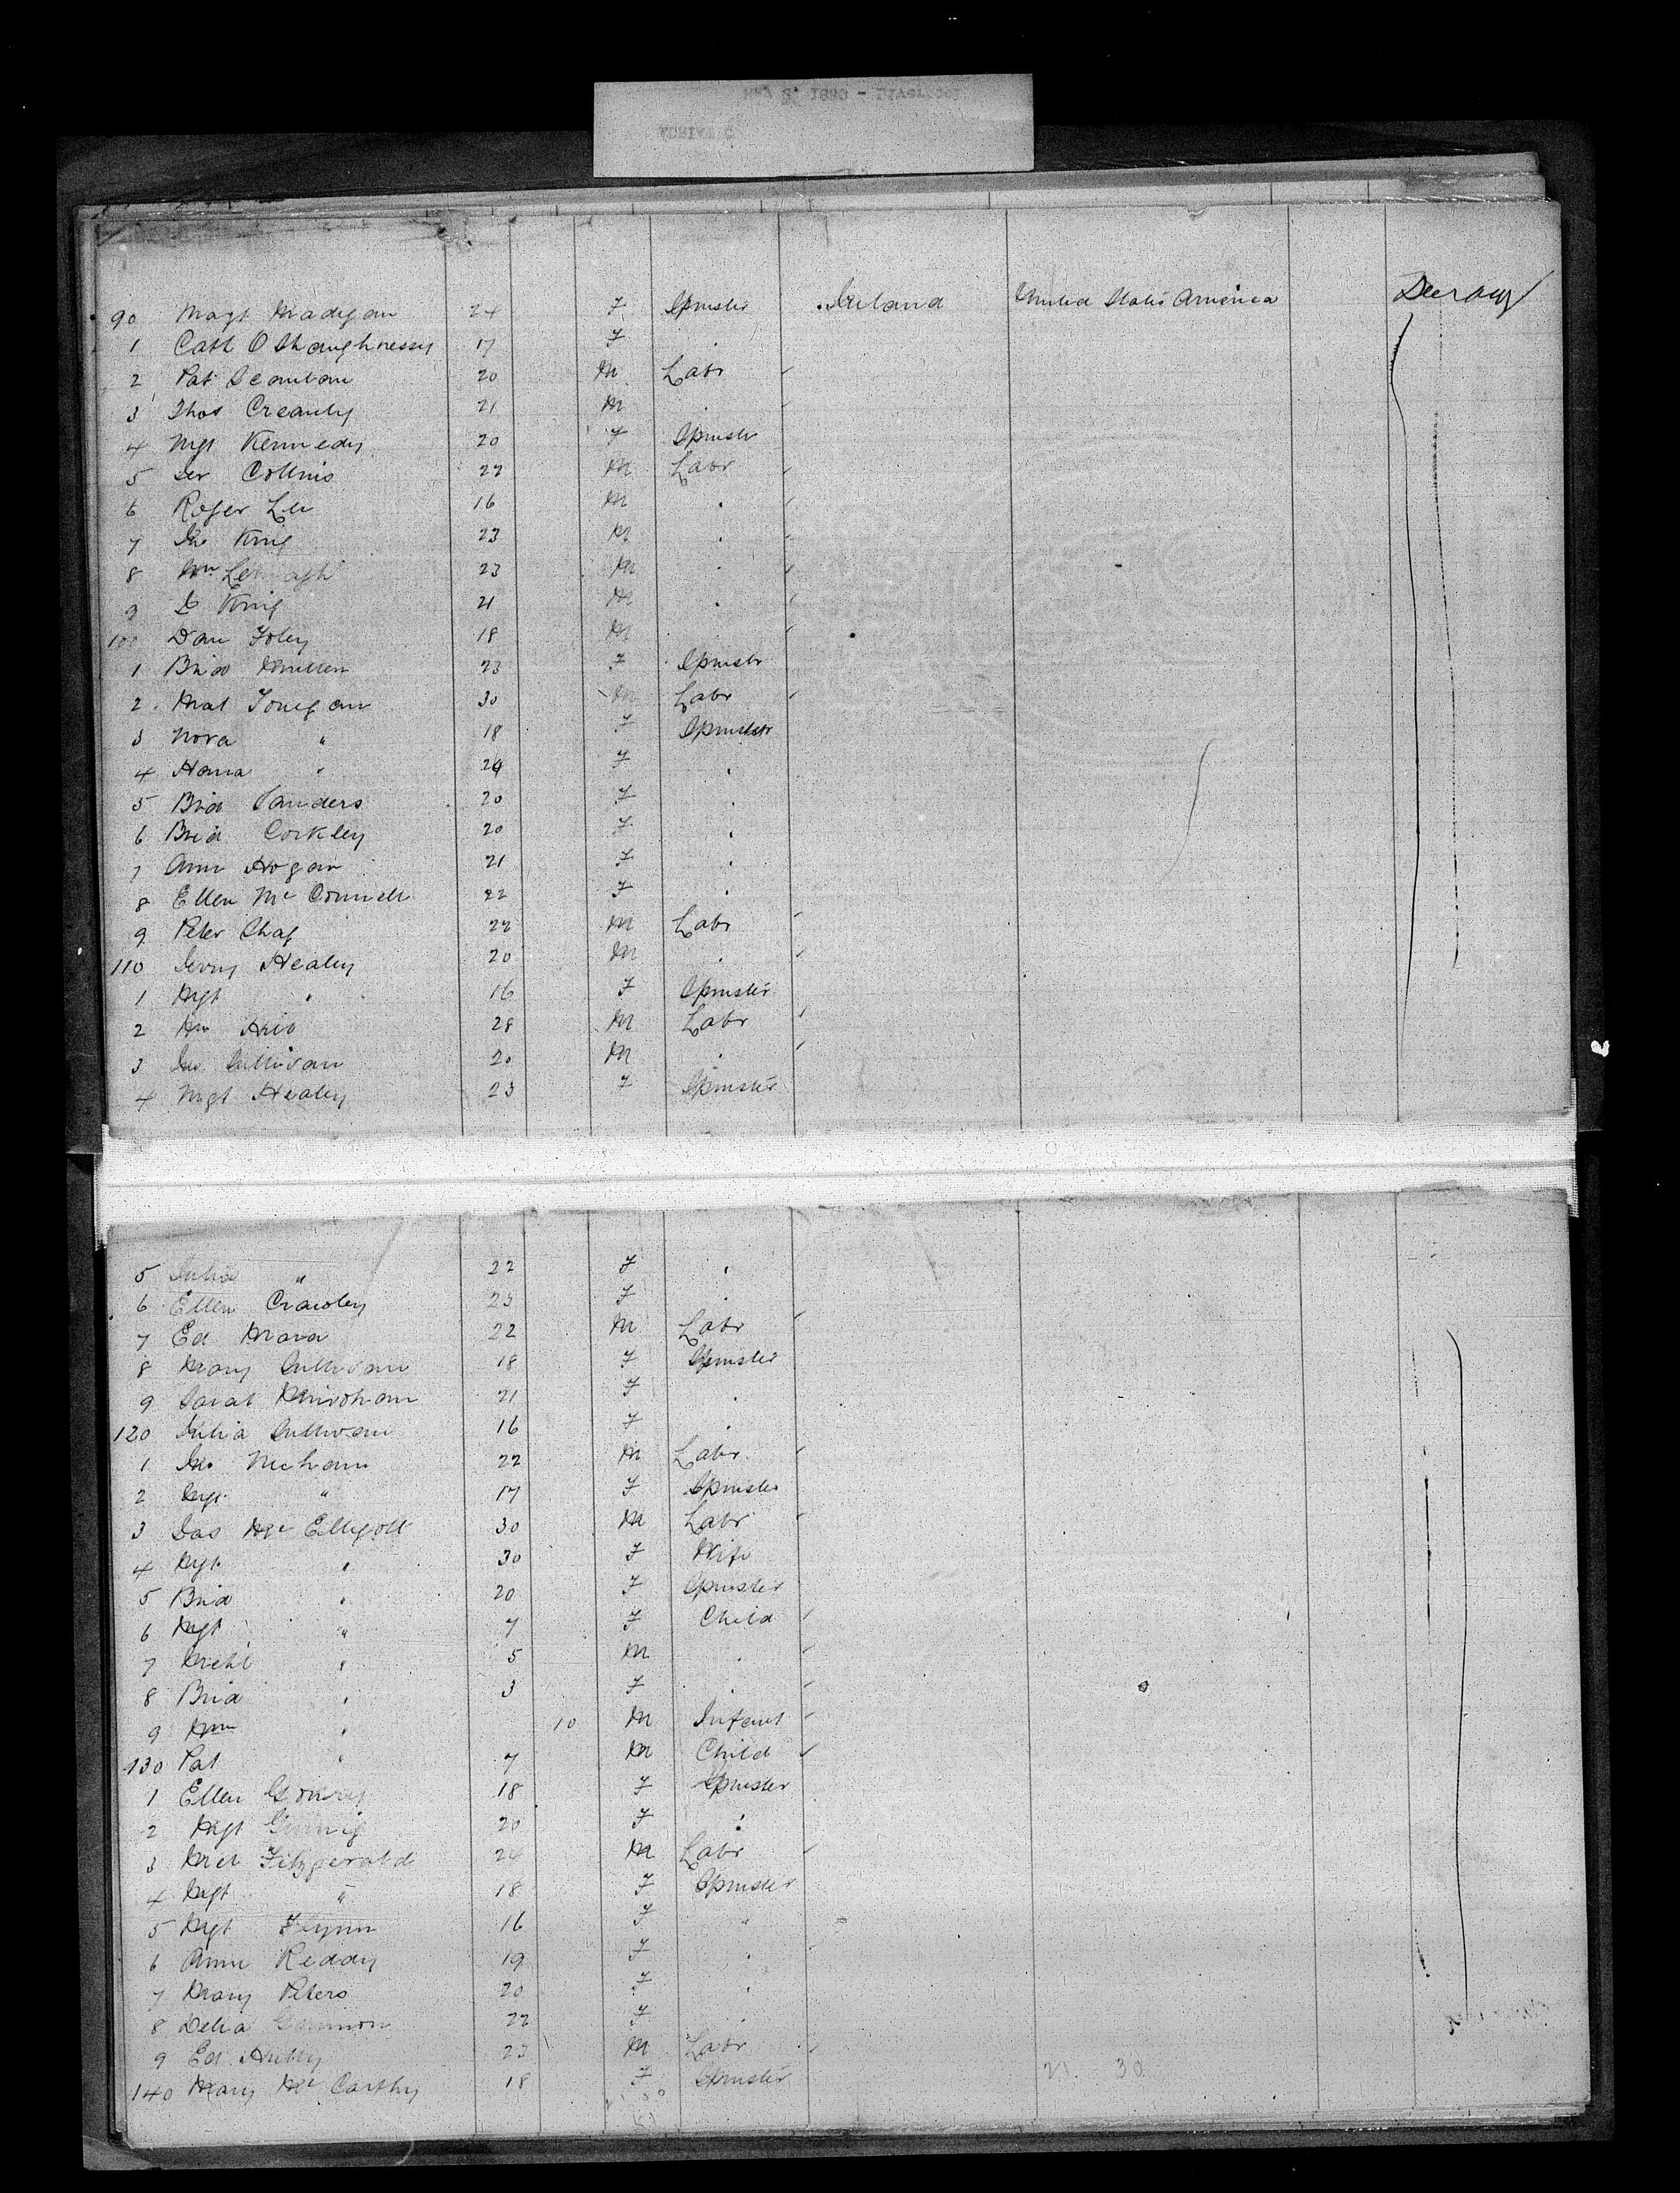 90 Magt Madigan 24 F Spinster Ireland United States America Steerage
1 Cath O Shaughnessy 17 F .
2 Pat Scanlan 20 M Labr
3 Thos 21 M .
4 Mgt Kennedy 20 F Spinstr
5 Jer Collins 22 M Labr
6 Roger Lee 16 M .
7 Jno King 23 M .
8 Wm 23 M .
9 D King 21 M .
100 Dan Foley 18 M
1 Brid Mullen 23 F Spinstr
2 Mat 30 M Labr
3 Nora " 18 F Spinster
4 Hana " F .
5 Brid Sanders 20 F .
6 Brid Corkley 20 F .
7 Ann Hogan 21 F .
8 Ellen Mc Connell 22 F .
9 Peter 22 M Labr
110 Jerry Healey 20 M .
1 Mgt " 16 F Spinster
2 Wm 28 M Labr
3 Jno Sullivan 20 M .
4 Mgt Healey 23 F Spinster
5 Julia " 22 F .
6 Ellen Crawley 23 F .
7 Ed Mara 22 M Labr
8 Mary Sullivan 18 F Spinster
9 Sarah 21 F .
120 Julia Sullivan 16 F .
1 Jno 22 M Labr
2 Mgt " 17 F Spinster
3 Jas Mc Elligott 30 M Labr
4 Mgt " 30 F Wife
5 Brid " 20 F Spinster
6 Mgt " 7 F Child
7 Michl " 5 M .
8 Brid " 3 F .
9 Wm " 10 M Infant
130 Pat " 7 M Child
1 Ellen 18 F Spinster
2 Mgt 20 F .
3 Mich Fitzgerald 24 M Labr
4 Mgt " 18 F Spinster
5 Mgt Flynn 16 F "
6 Ann Reddy 19 F .
7 Mary Peters 20 F .
8 Delia 22 F .
9 Ed 23 M Labr
140 Mary Mc Carthy 18 F Spinster